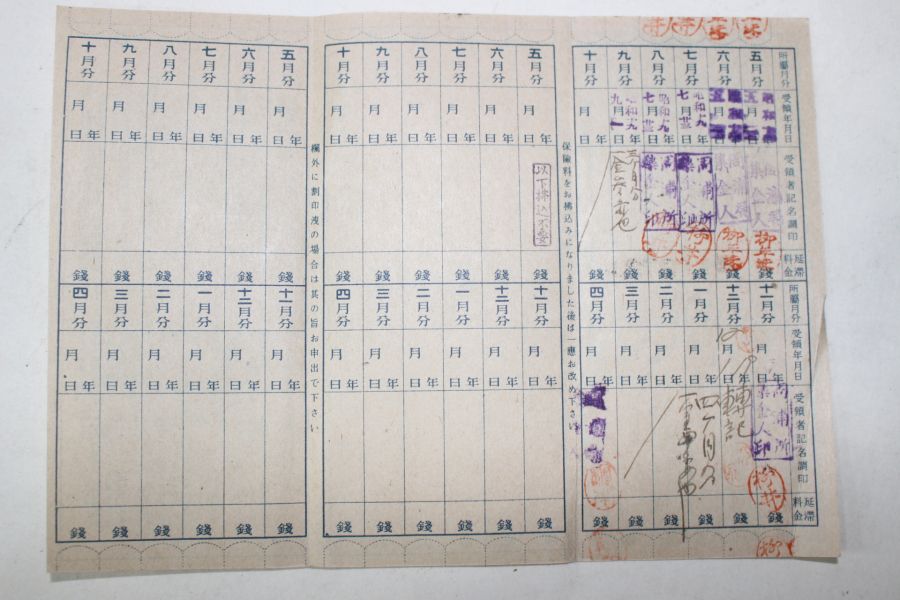 所屬月分
五月分
六月分
七月分
八月分
九月分
十月分
受領年月日
年 月 日
年 月 日
昭和十九年七月
昭和十九年七月
昭和十九年九月一日
年 月 日
受領者記名調印
周南所
集金人
三ヶ月分
延滯料金
錢
錢
錢
錢
錢
錢
所屬月分
十一月分
十二月分
一月分
二月分
三月分
四月分
受領年月日
年 月 日
年 月 日
年 月 日
年 月 日
年 月 日
年 月 日
受領者記名調印
集金人印
轉記
四ヶ月分
延滯料金
錢
錢
錢
錢
錢
錢
保險料をお拂込みになりました後は一應お改め下さい
五月分
六月分
七月分
八月分
九月分
十月分
年 月 日
年 月 日
年 月 日
年 月 日
年 月 日
年 月 日
以下拂込不要
錢
錢
錢
錢
錢
錢
十一月分
十二月分
一月分
二月分
三月分
四月分
年 月 日
年 月 日
年 月 日
年 月 日
年 月 日
年 月 日
錢
錢
錢
錢
錢
錢
欄外に割印洩の場合は其の旨お申出で下さい
五月分
六月分
七月分
八月分
九月分
十月分
年 月 日
年 月 日
年 月 日
年 月 日
年 月 日
年 月 日
錢
錢
錢
錢
錢
錢
十一月分
十二月分
一月分
二月分
三月分
四月分
年 月 日
年 月 日
年 月 日
年 月 日
年 月 日
年 月 日
錢
錢
錢
錢
錢
錢